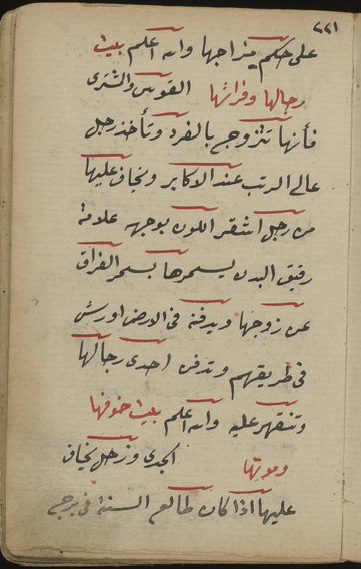 ٢٢١
على حكم مزاجها والله اعلم بيت
رجالها وفراشها القوس والمشترى
فأنها تتزوج بالفرد وتأخذ رجل
عالى الرتب عند الاكابر ويخاف عليها
من رجل اشقر اللون بوجهه علامة
رقيق البدن يسحرها بسحر الفراق
عن زوجها ويدفنه فى الارض او رش
فى طريقهم وتدفن احدى رجالها
وتنقهر عليه والله اعلم بيت خوفها
وموتها الجدى وزحل يخاف
عليها اذا كان طالع السنة فى برج